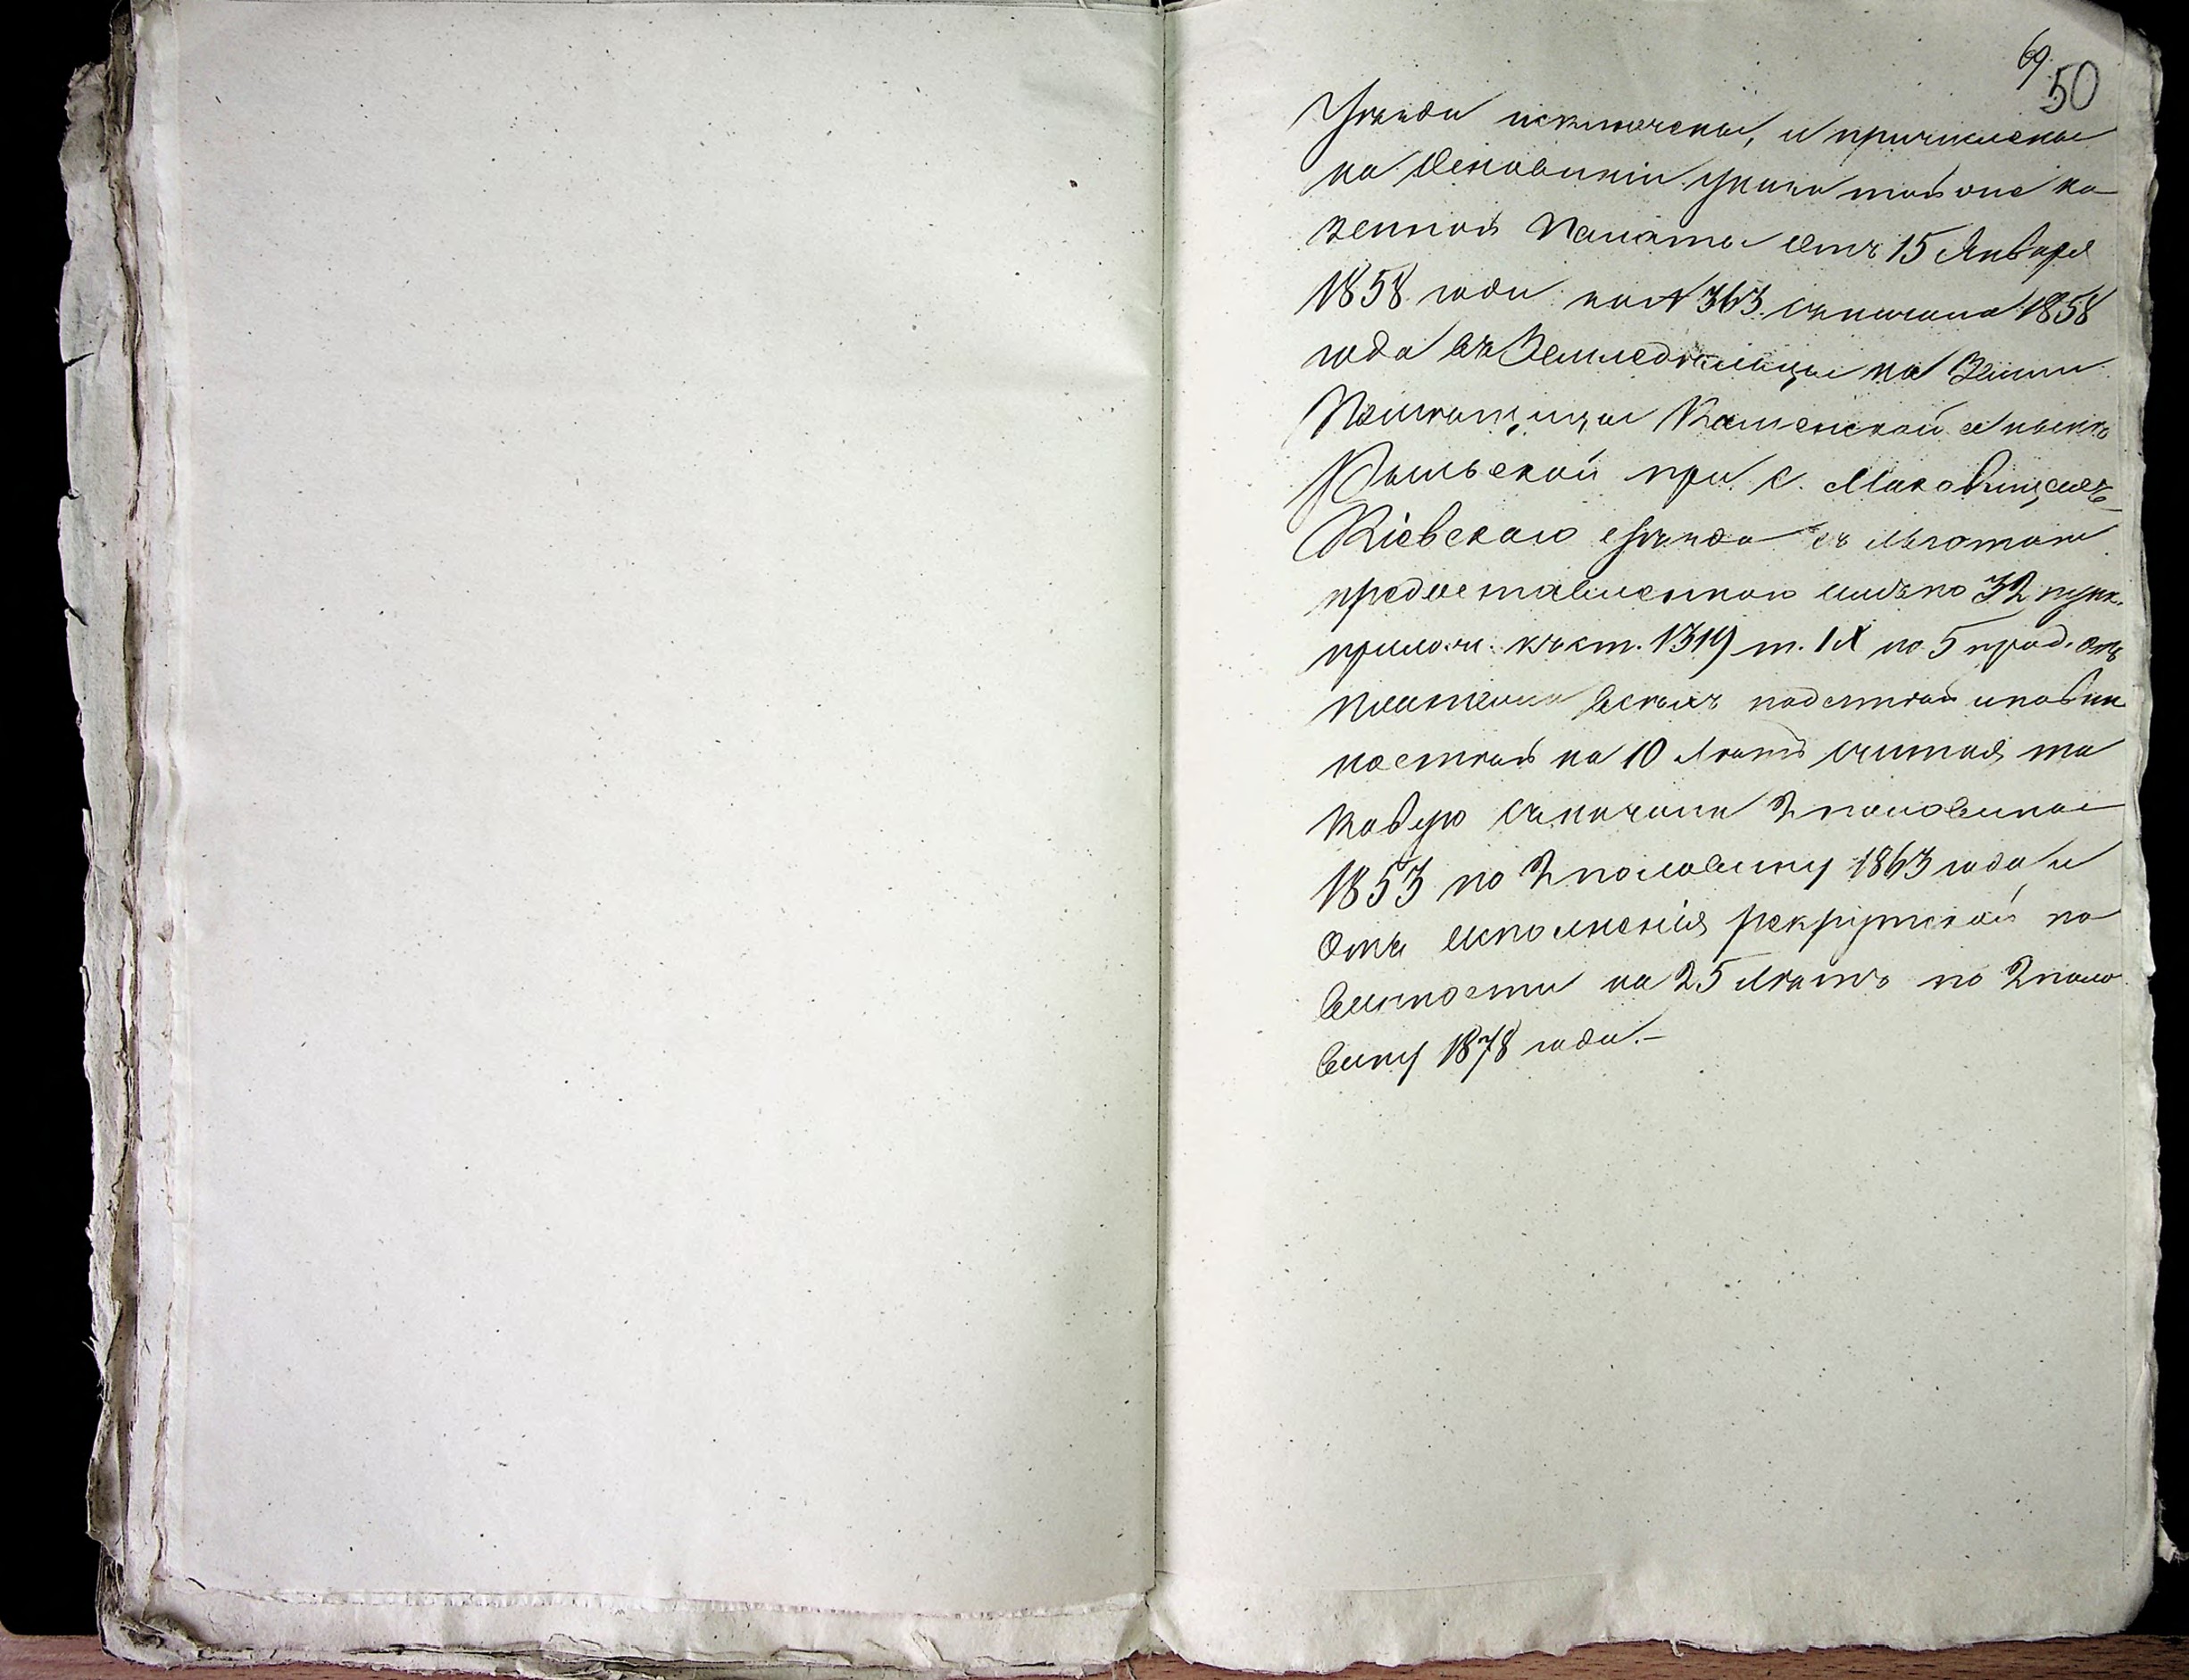 69.
50
Уѣзда исключены, и причислены
на Основаніи указа той же ка
зенной Палаты Отъ 15 Января
1858 года за № 363. съ начала 1858
года въ Земледѣльцы на Земли
Помѣщицы Каменской а нынѣ
Рыльской при с. Маковищахъ
Кіевскаго уѣзда съ льготою
предоставленною имъ по 32 пунк.
прилож. къ ст. 1319 т. IX по 5 прод. отъ
платежа всѣхъ податей и повин
ностей на 10 лѣтъ считая та
ковую съ начала 2 половины
1853 по 2 половину 1863 года и
Отъ исполненія рекрутской по
винности на 25 лѣтъ по 2 поло
вину 1878 года.—